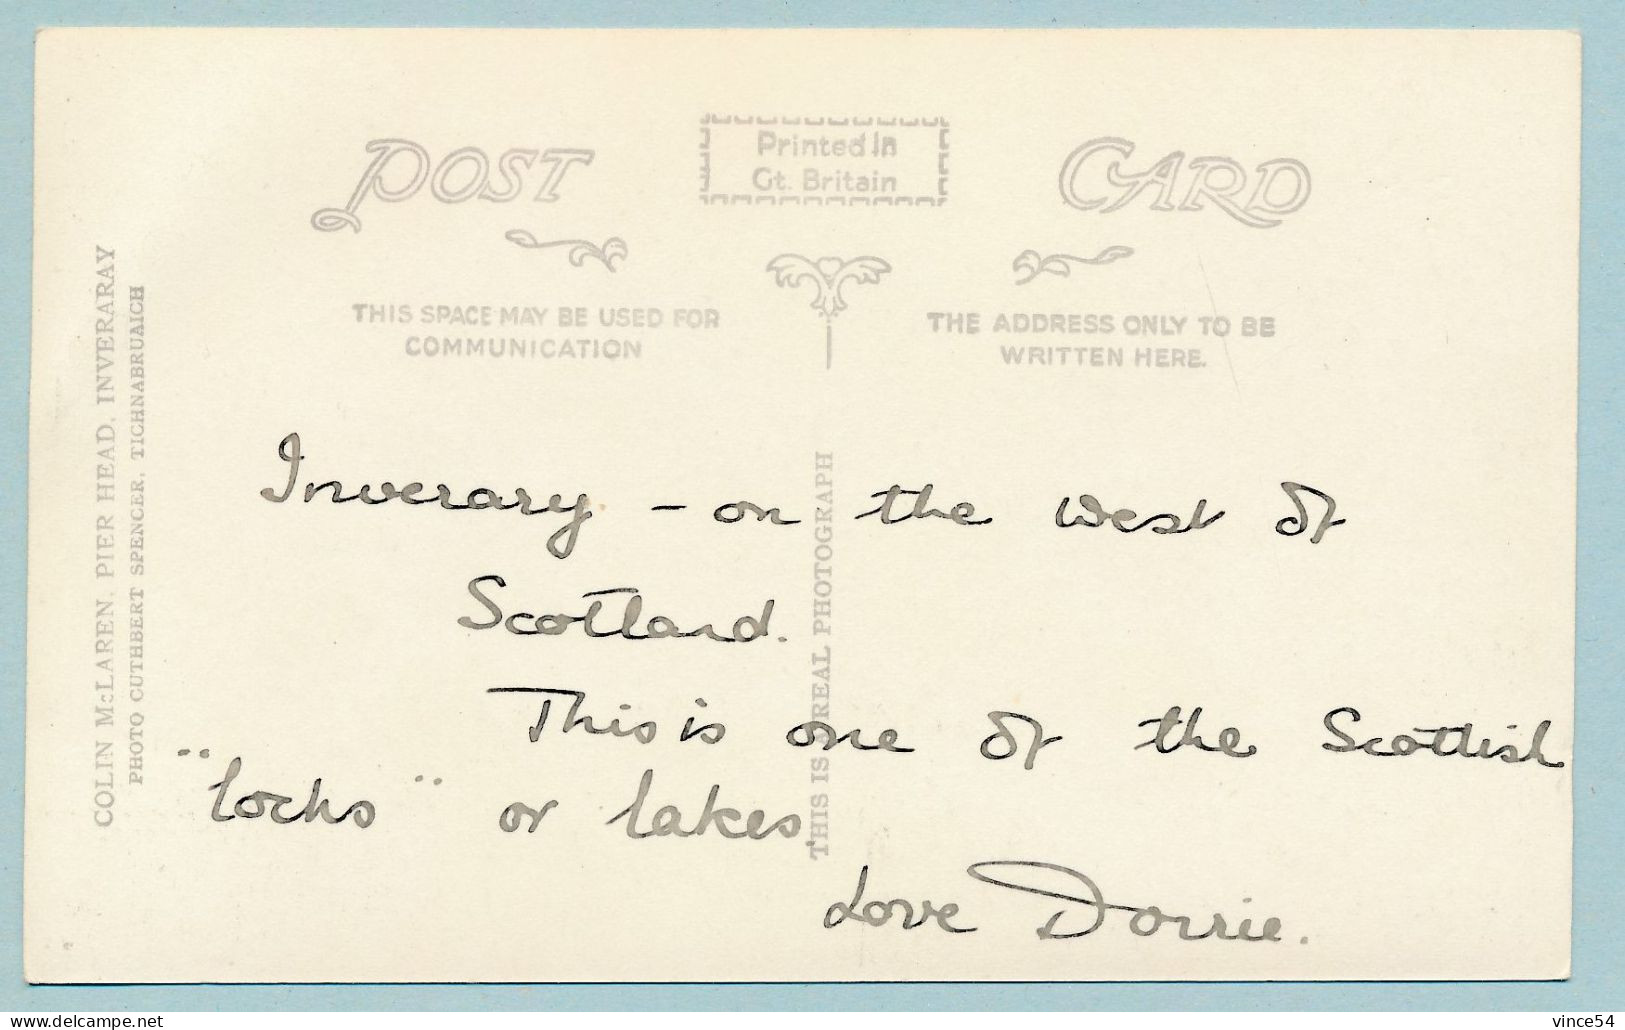 POST CARD
Printed in
Gt. Britain
THIS SPACE MAY BE USED FOR
COMMUNICATION
THE ADDRESS ONLY TO BE
WRITTEN HERE.
COLIN McLAREN, PIER HEAD, INVERARAY
PHOTO CUTHBERT SPENCER, TICHNABRUAICH
THIS IS A REAL PHOTOGRAPH
Inverary - on the west of
Scotland.
This is one of the Scottish
"lochs" or lakes.
Love Dorrie.
www.delcampe.net
vince54